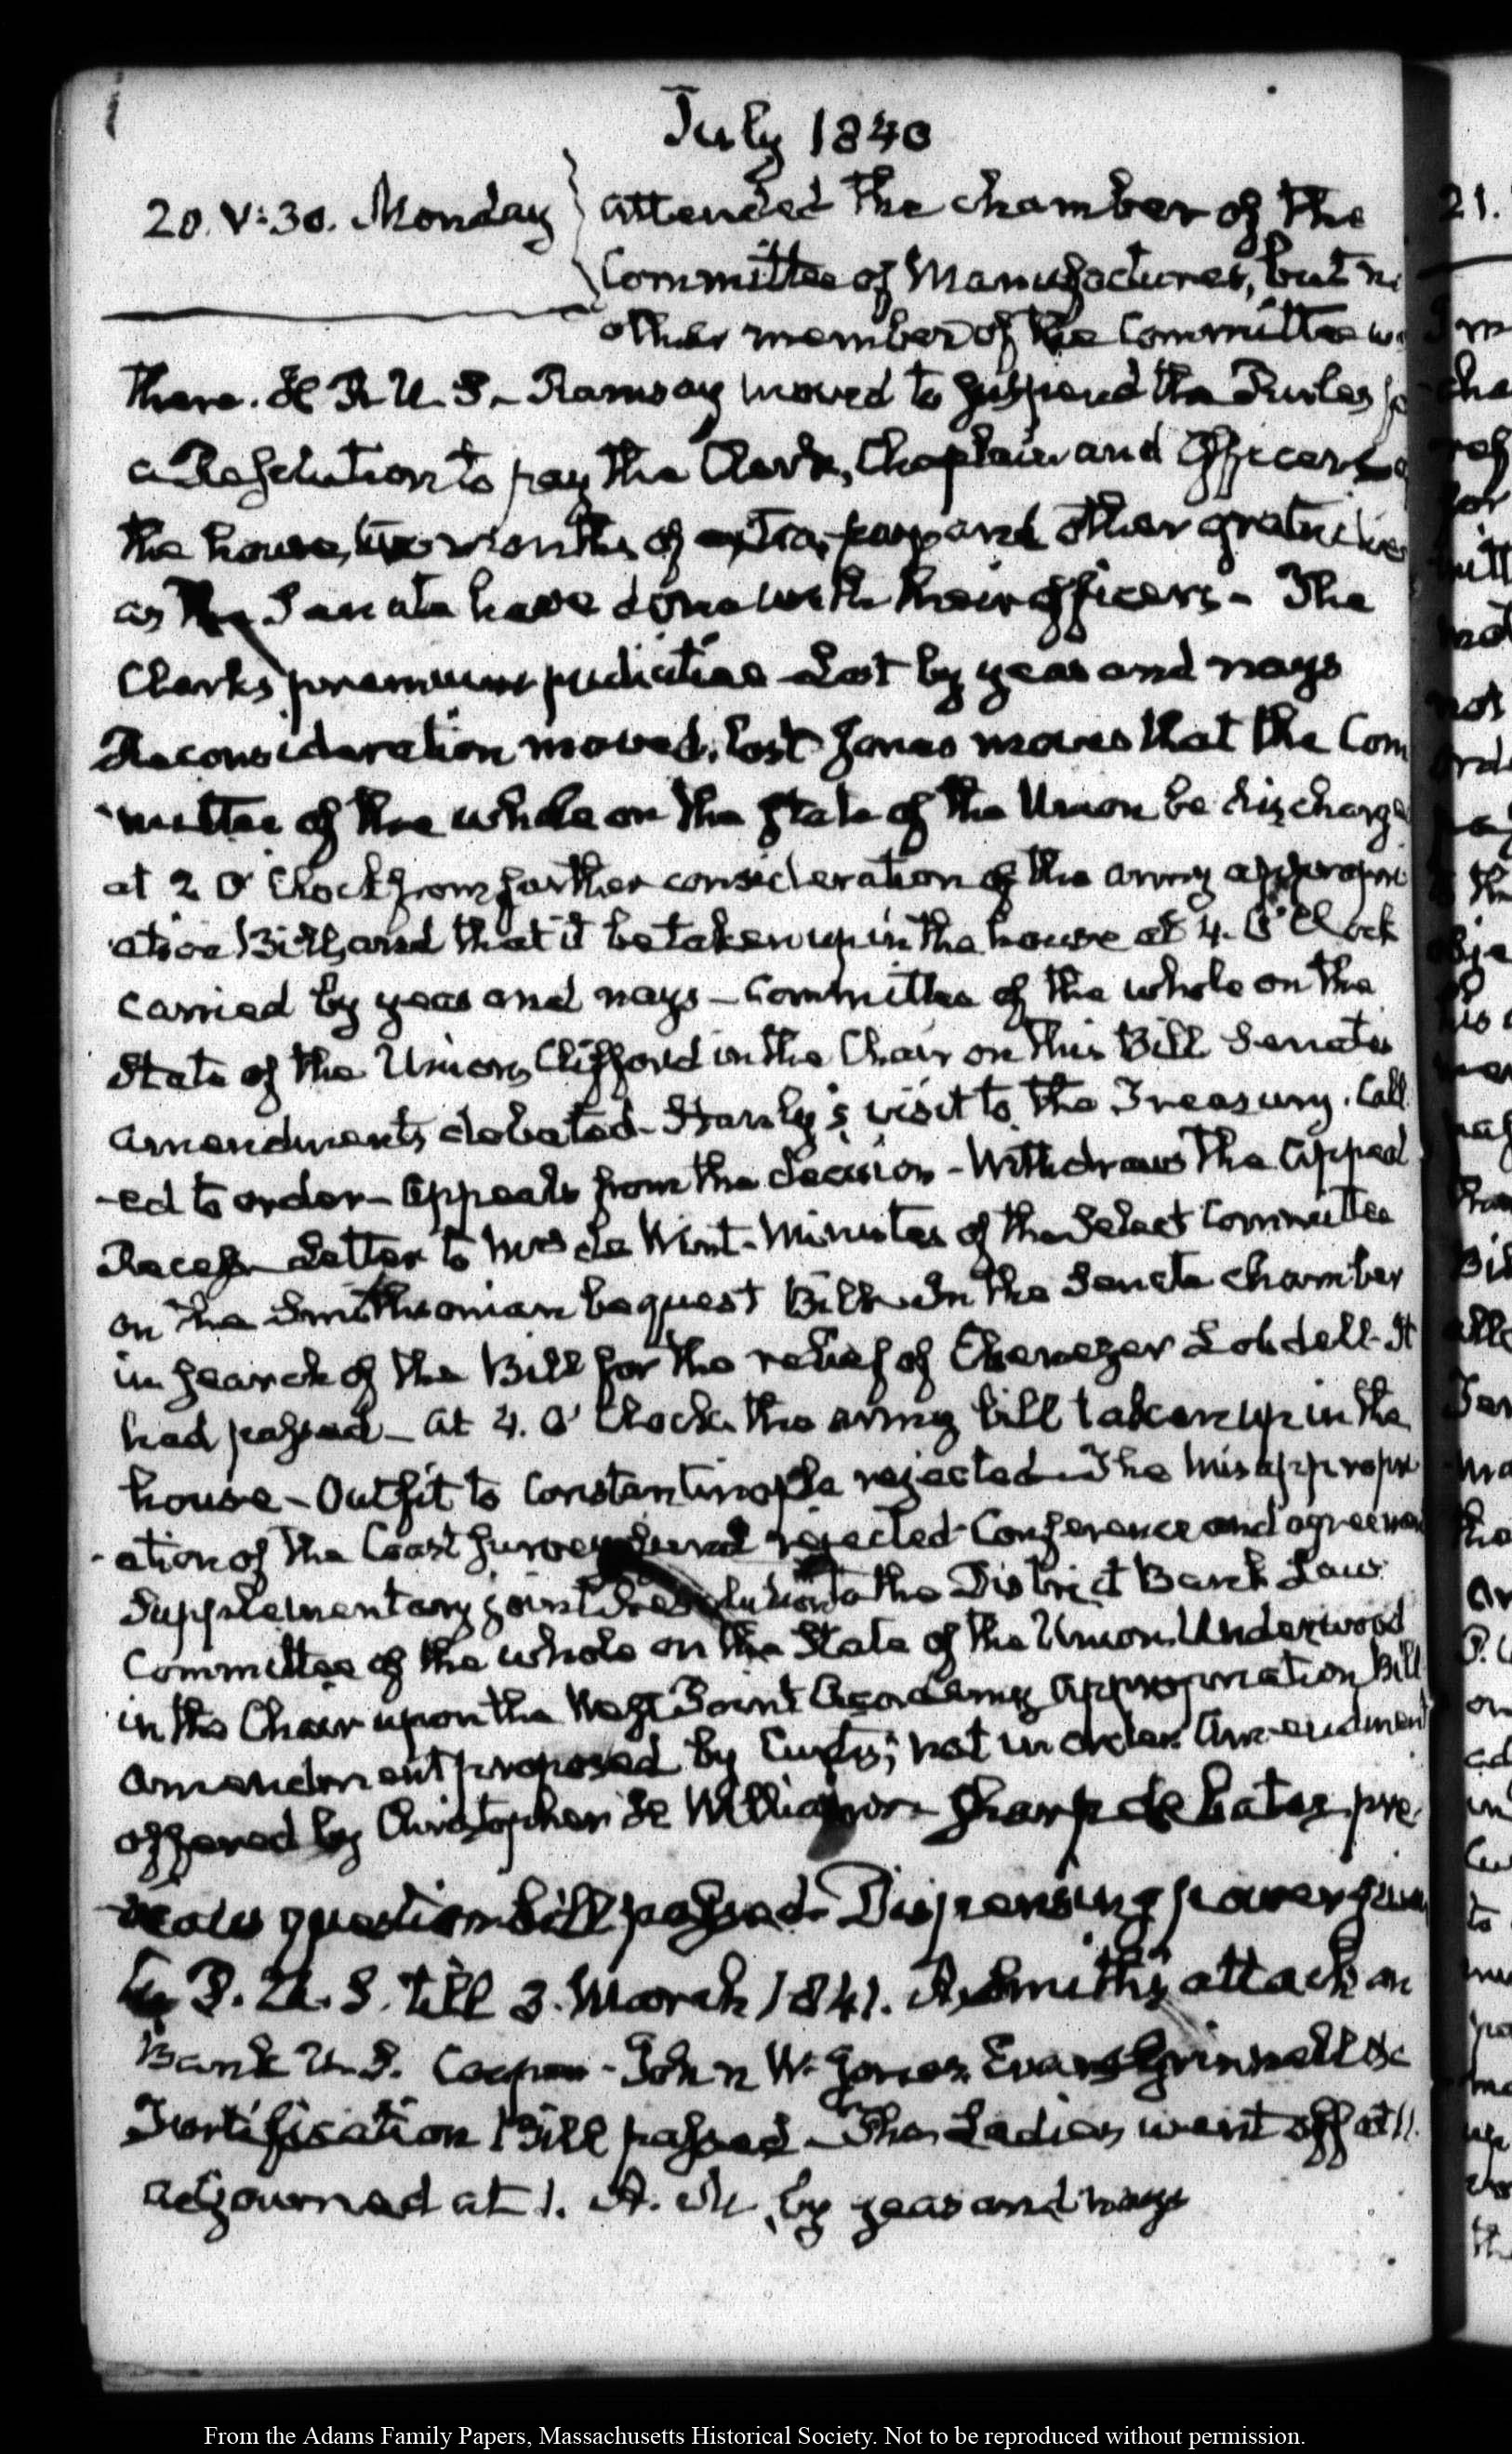 July 1840
20. V:30. Monday
attended the chamber of the
Committee of Manufactures, but n
other member of the Committee w
there. H. R. U. S.- Ramsay moved to suspend the Rules fo
a Resolution to pay the Clerk, Chaplain and Officers o
the house, two months of extra, pay and other gratuities
as the Senate have done with their officers - The
Clerks premium pudicitiae - Lost by yeas and nays
Reconsideration moved, lost - Jones moves that the Com
mittee of the whole on the State of the Union be discharge
at 2 O'Clock from further consideration of the army appropri
ation Bill, and that it be taken up in the house at 4. O'Clock
carried by yeas and nays - Committee of the whole on the
State of the Union, Clifford in the Chair on this Bill Senate's
amendments debated - Stanly's visit to the Treasury. Call
-ed to order - Appeals from the decision - Withdraws the appeal
Recess - Letter to Mrs de Wint - Minutes of the Select Committee
on the Smithsonian bequest Bill - In the Senate chamber
in search of the Bill for the relief of Ebenezer Lobdell - It
had passed - at 4. O'Clock the army bill taken up in the
house - Outfit to Constantinople rejected - The misappropri
-ation of the Coast Survey fund rejected - Conference and agreemen
Supplementary joint Resolution to the District Bank Law
Committee of the whole on the State of the Union. Underwood
in the Chair upon the West Point Academy appropriation Bill
amendment proposed by Curtis; not in order. Amendment
offered by Christopher H. Williams - Sharp debates, pre-
-vious question - bill passed - Dispensing power given
to P. U. S. till 3. March 1841. A. Smith's attack on
Bank U.S. Cooper - John W. Jones. Evans Grinnell &c
Fortification Bill passed - The Ladies went off at 11.
adjourned at 1. A. M. by yeas and nays
From the Adams Family Papers, Massachusetts Historical Society. Not to be reproduced without permission.